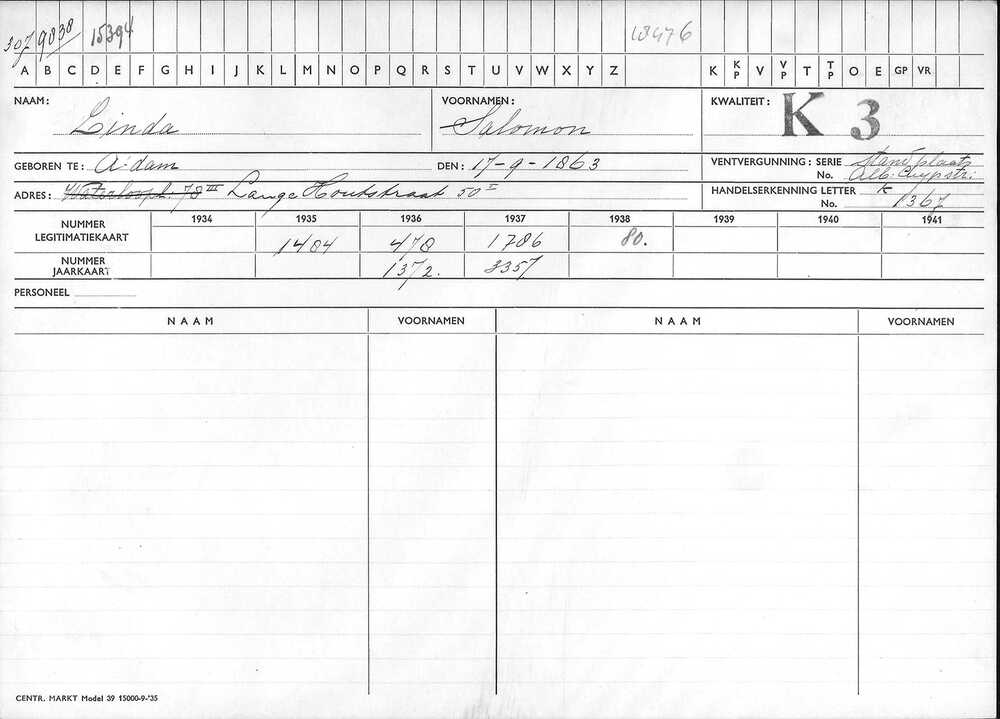 307 9838 15394 18476
A B C D E F G H I J K L M N O P Q R S T U V W X Y Z K KP V VP T TP O E GP VR
NAAM: Linda VOORNAMEN: Salomon KWALITEIT: K 3
GEBOREN TE: A'dam DEN: 17-9-1863 VENTVERGUNNING: SERIE Standplaats
No. Alb. Cuypstr.
ADRES: Waterloopl. 78 III Lange Houtstraat 50 I HANDELSERKENNING LETTER K
No. 1367
1934 1935 1936 1937 1938 1939 1940 1941
NUMMER LEGITIMATIEKAART 1484 478 1786 80.
NUMMER JAARKAART 1372. 3357
PERSONEEL
NAAM VOORNAMEN NAAM VOORNAMEN
CENTR. MARKT Model 39 15000-9-'35